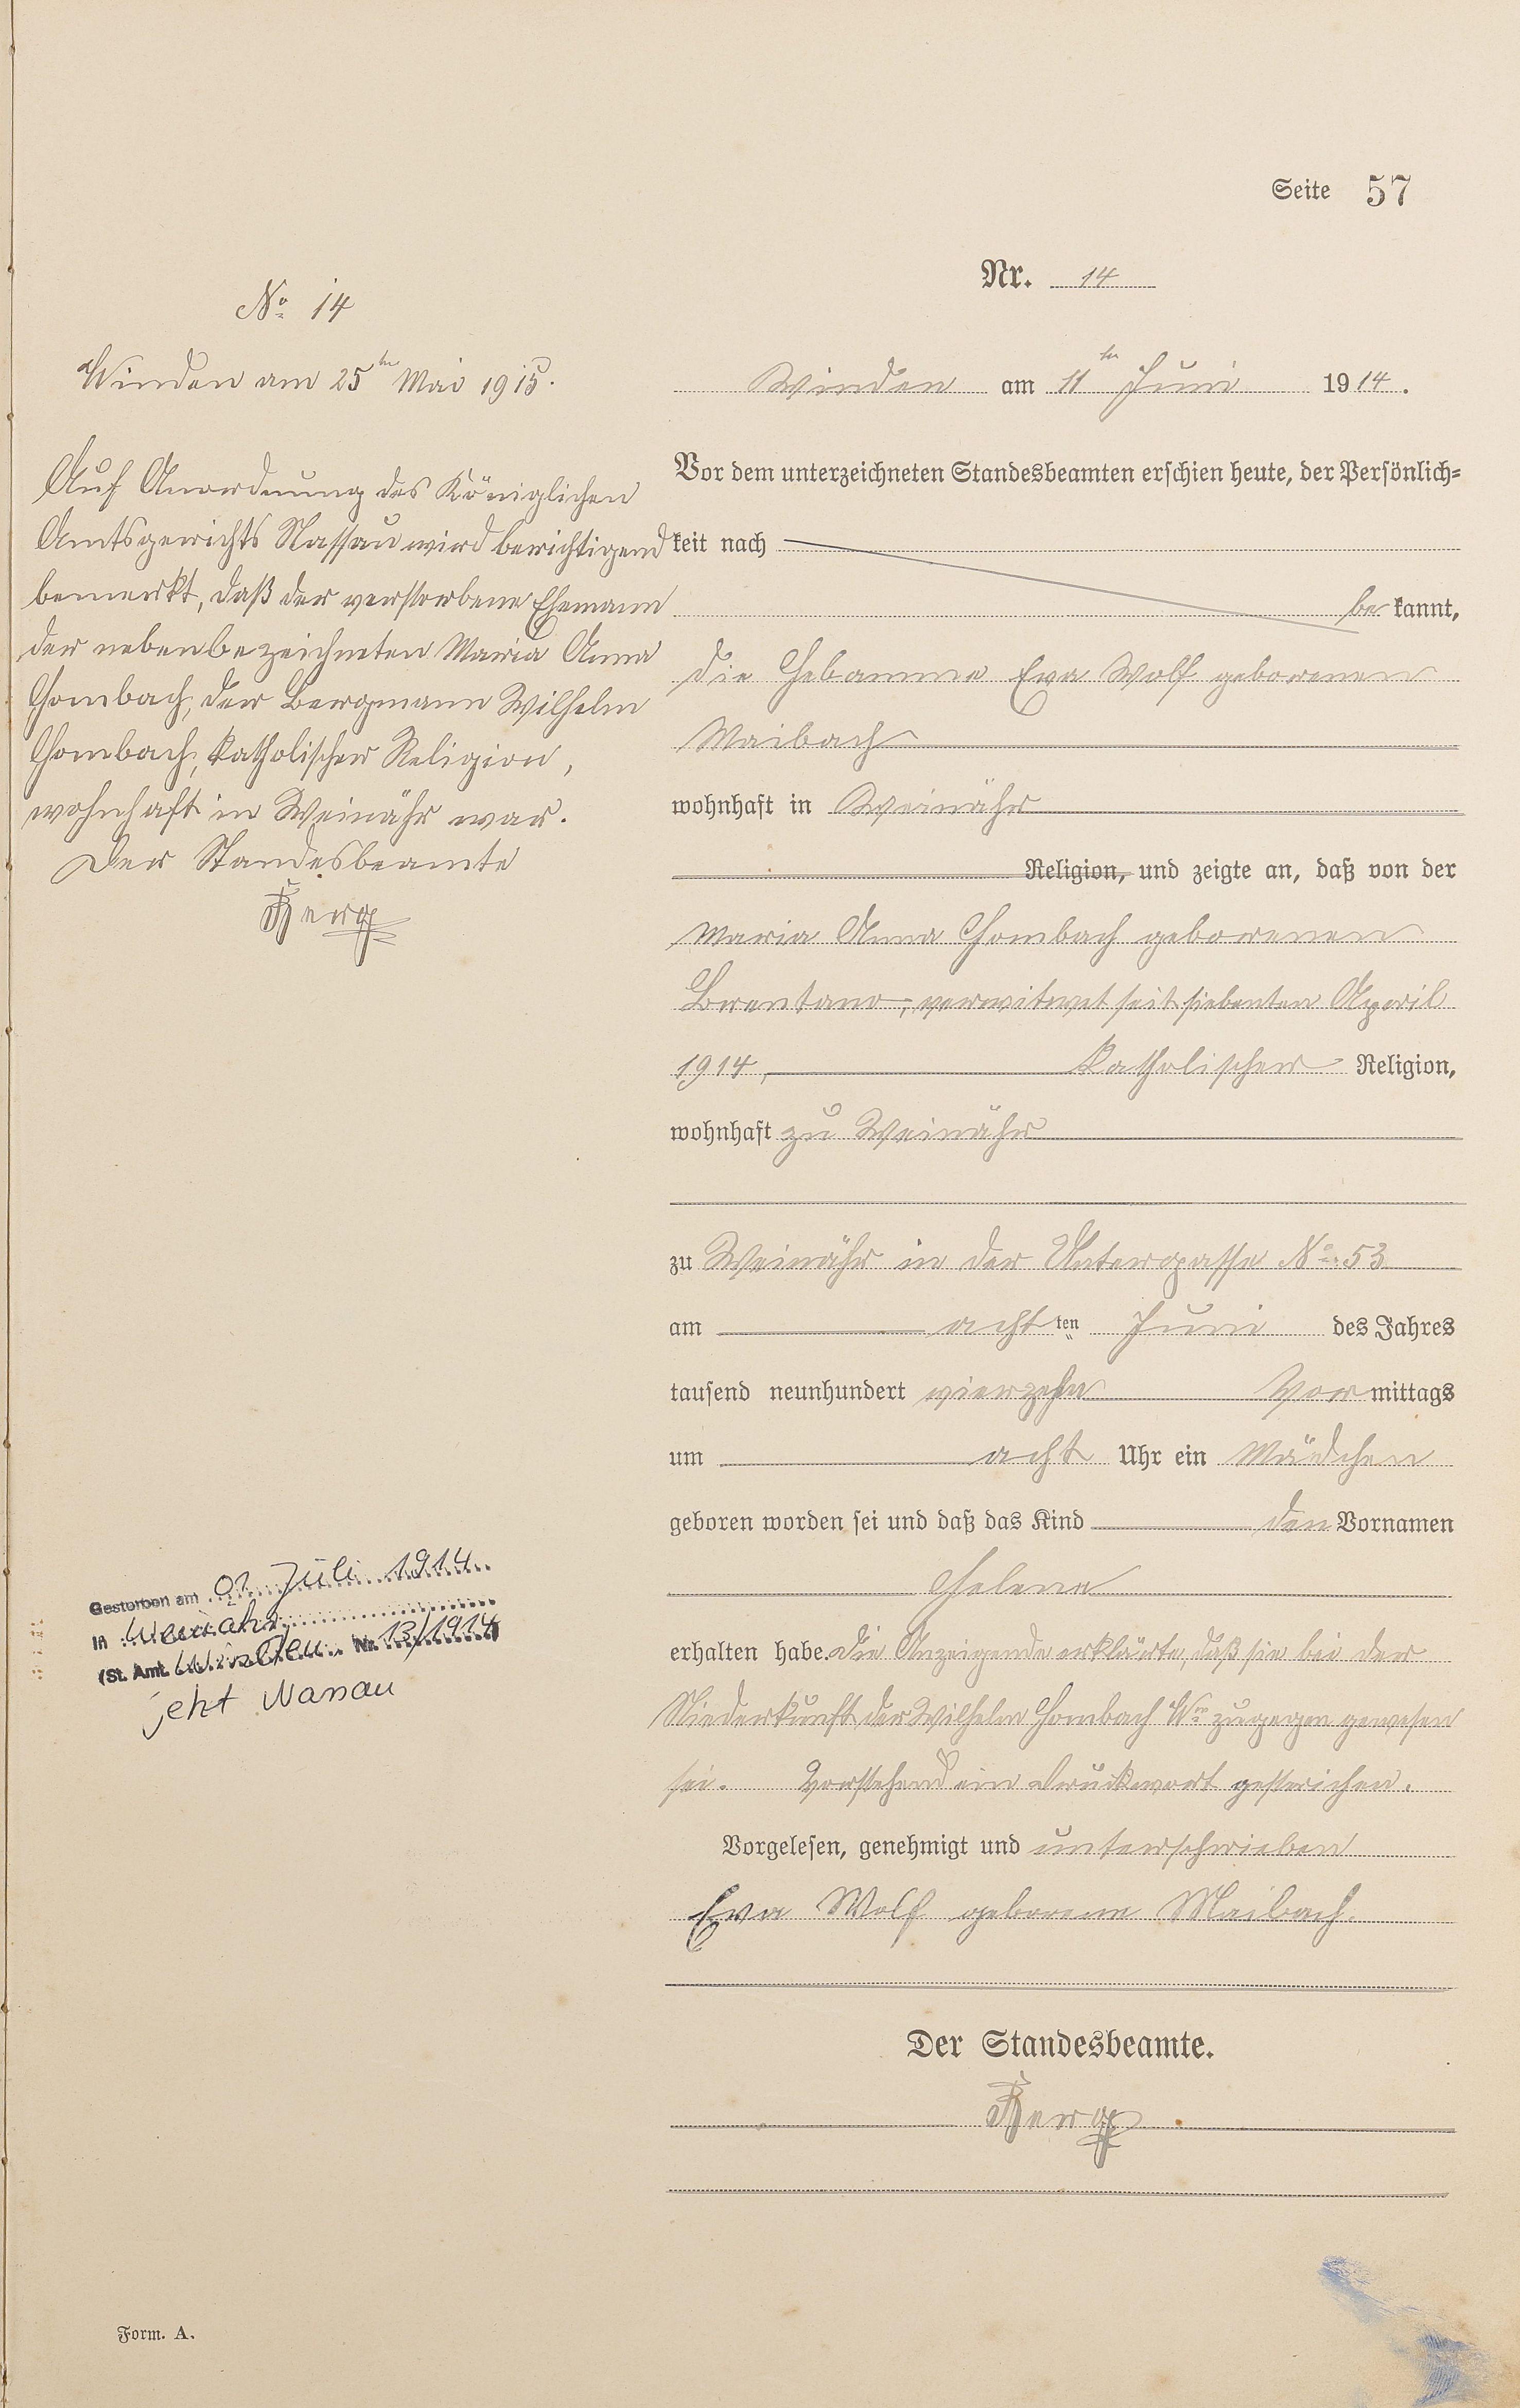 Seite 57
Nr. 14
Winden am 11ten Juni 1914.
Vor dem unterzeichneten Standesbeamten erschien heute, der Persönlich=
keit nach
be kannt,
die Hebamme Eva Wolf geborenen
Maibach
wohnhaft in Weinähr
Religion, und zeigte an, daß von der
Maria Anna Hombach geborenen
Brentano, verwitwet seit siebenten April
1914, katholischer Religion,
wohnhaft zu Weinähr
zu Weinähr in der Untergasse No. 53
am achtten Juni des Jahres
tausend neunhundert vierzehn Vormittags
um acht Uhr ein Mädchen
geboren worden sei und daß das Kind den Vornamen
Helena
erhalten habe. Die Anzeigende erklärte, daß sie bei der
Niederkunft der Wilhelm Hombach Wwe zugegen gewesen
sei. Vorstehend ein Druckwort gestrichen.
Vorgelesen, genehmigt und unterschrieben
Eva Wolf geborene Maibach.
Der Standesbeamte.
Berg
No 14
Winden am 25ten Mai 1915.
Auf Anordnung des Königlichen
Amtsgerichts Nassau wird berichtigend
bemerkt, daß der verstorbene Ehemann
der nebenbezeichneten Maria Anna
Hombach, der Bergmann Wilhelm
Hombach, katholischer Religion,
wohnhaft in Weinähr war.
Der Standesbeamte
Berg
Gestorben am Juli 1914
in Weinähr
(St. Amt Winden Nr. 13/1914)
jetzt Nassau
Form. A.